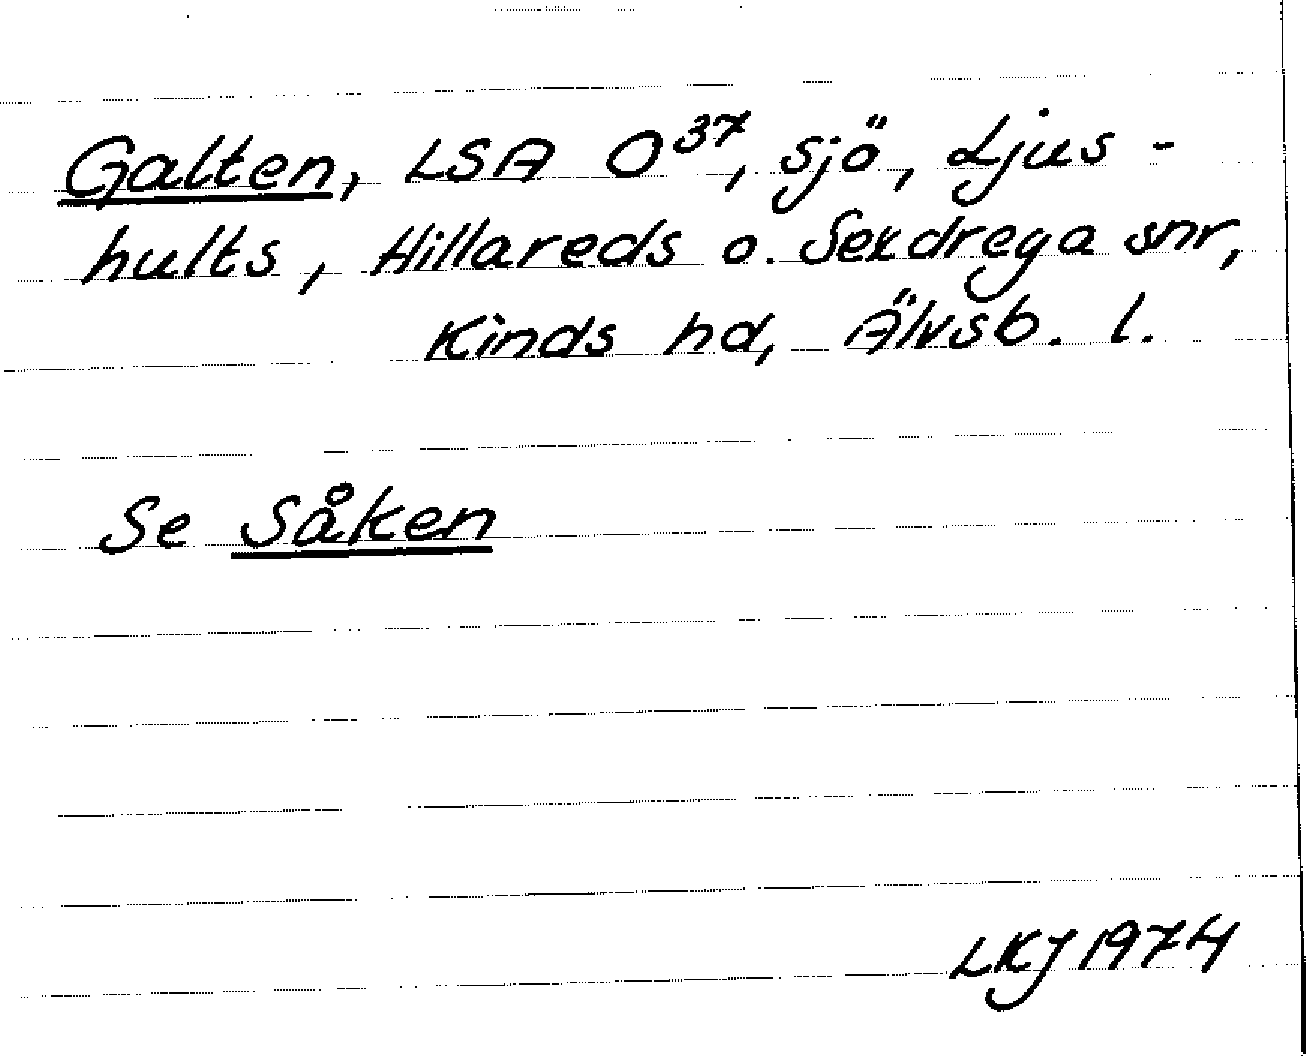 Galten, LSA O³⁷, sjö, Ljus-
hults, Hillareds o. Sexdrega snr,
Kinds hd, Älvsb. l.
Se Såken
LKJ 1974